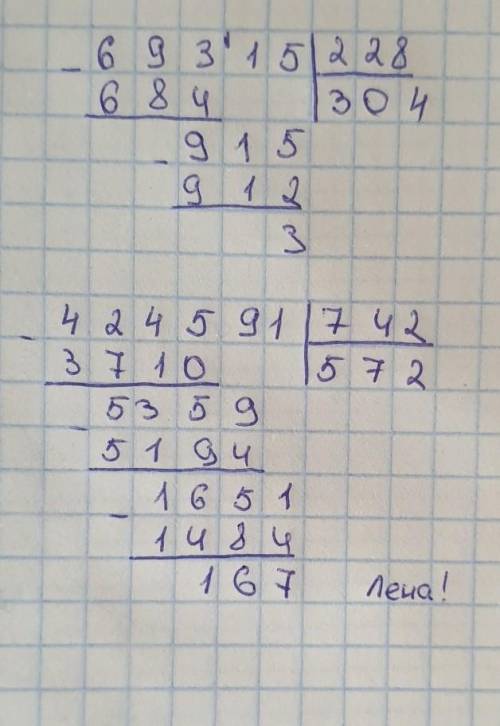 - 6 9 3 ' 1 5 | 2 2 8
6 8 4 | 3 0 4
- 9 1 5
9 1 2
3
- 4 2 4 5 9 1 | 7 4 2
3 7 1 0 | 5 7 2
- 5 3 5 9
5 1 9 4
- 1 6 5 1
1 4 8 4
1 6 7 Лена!